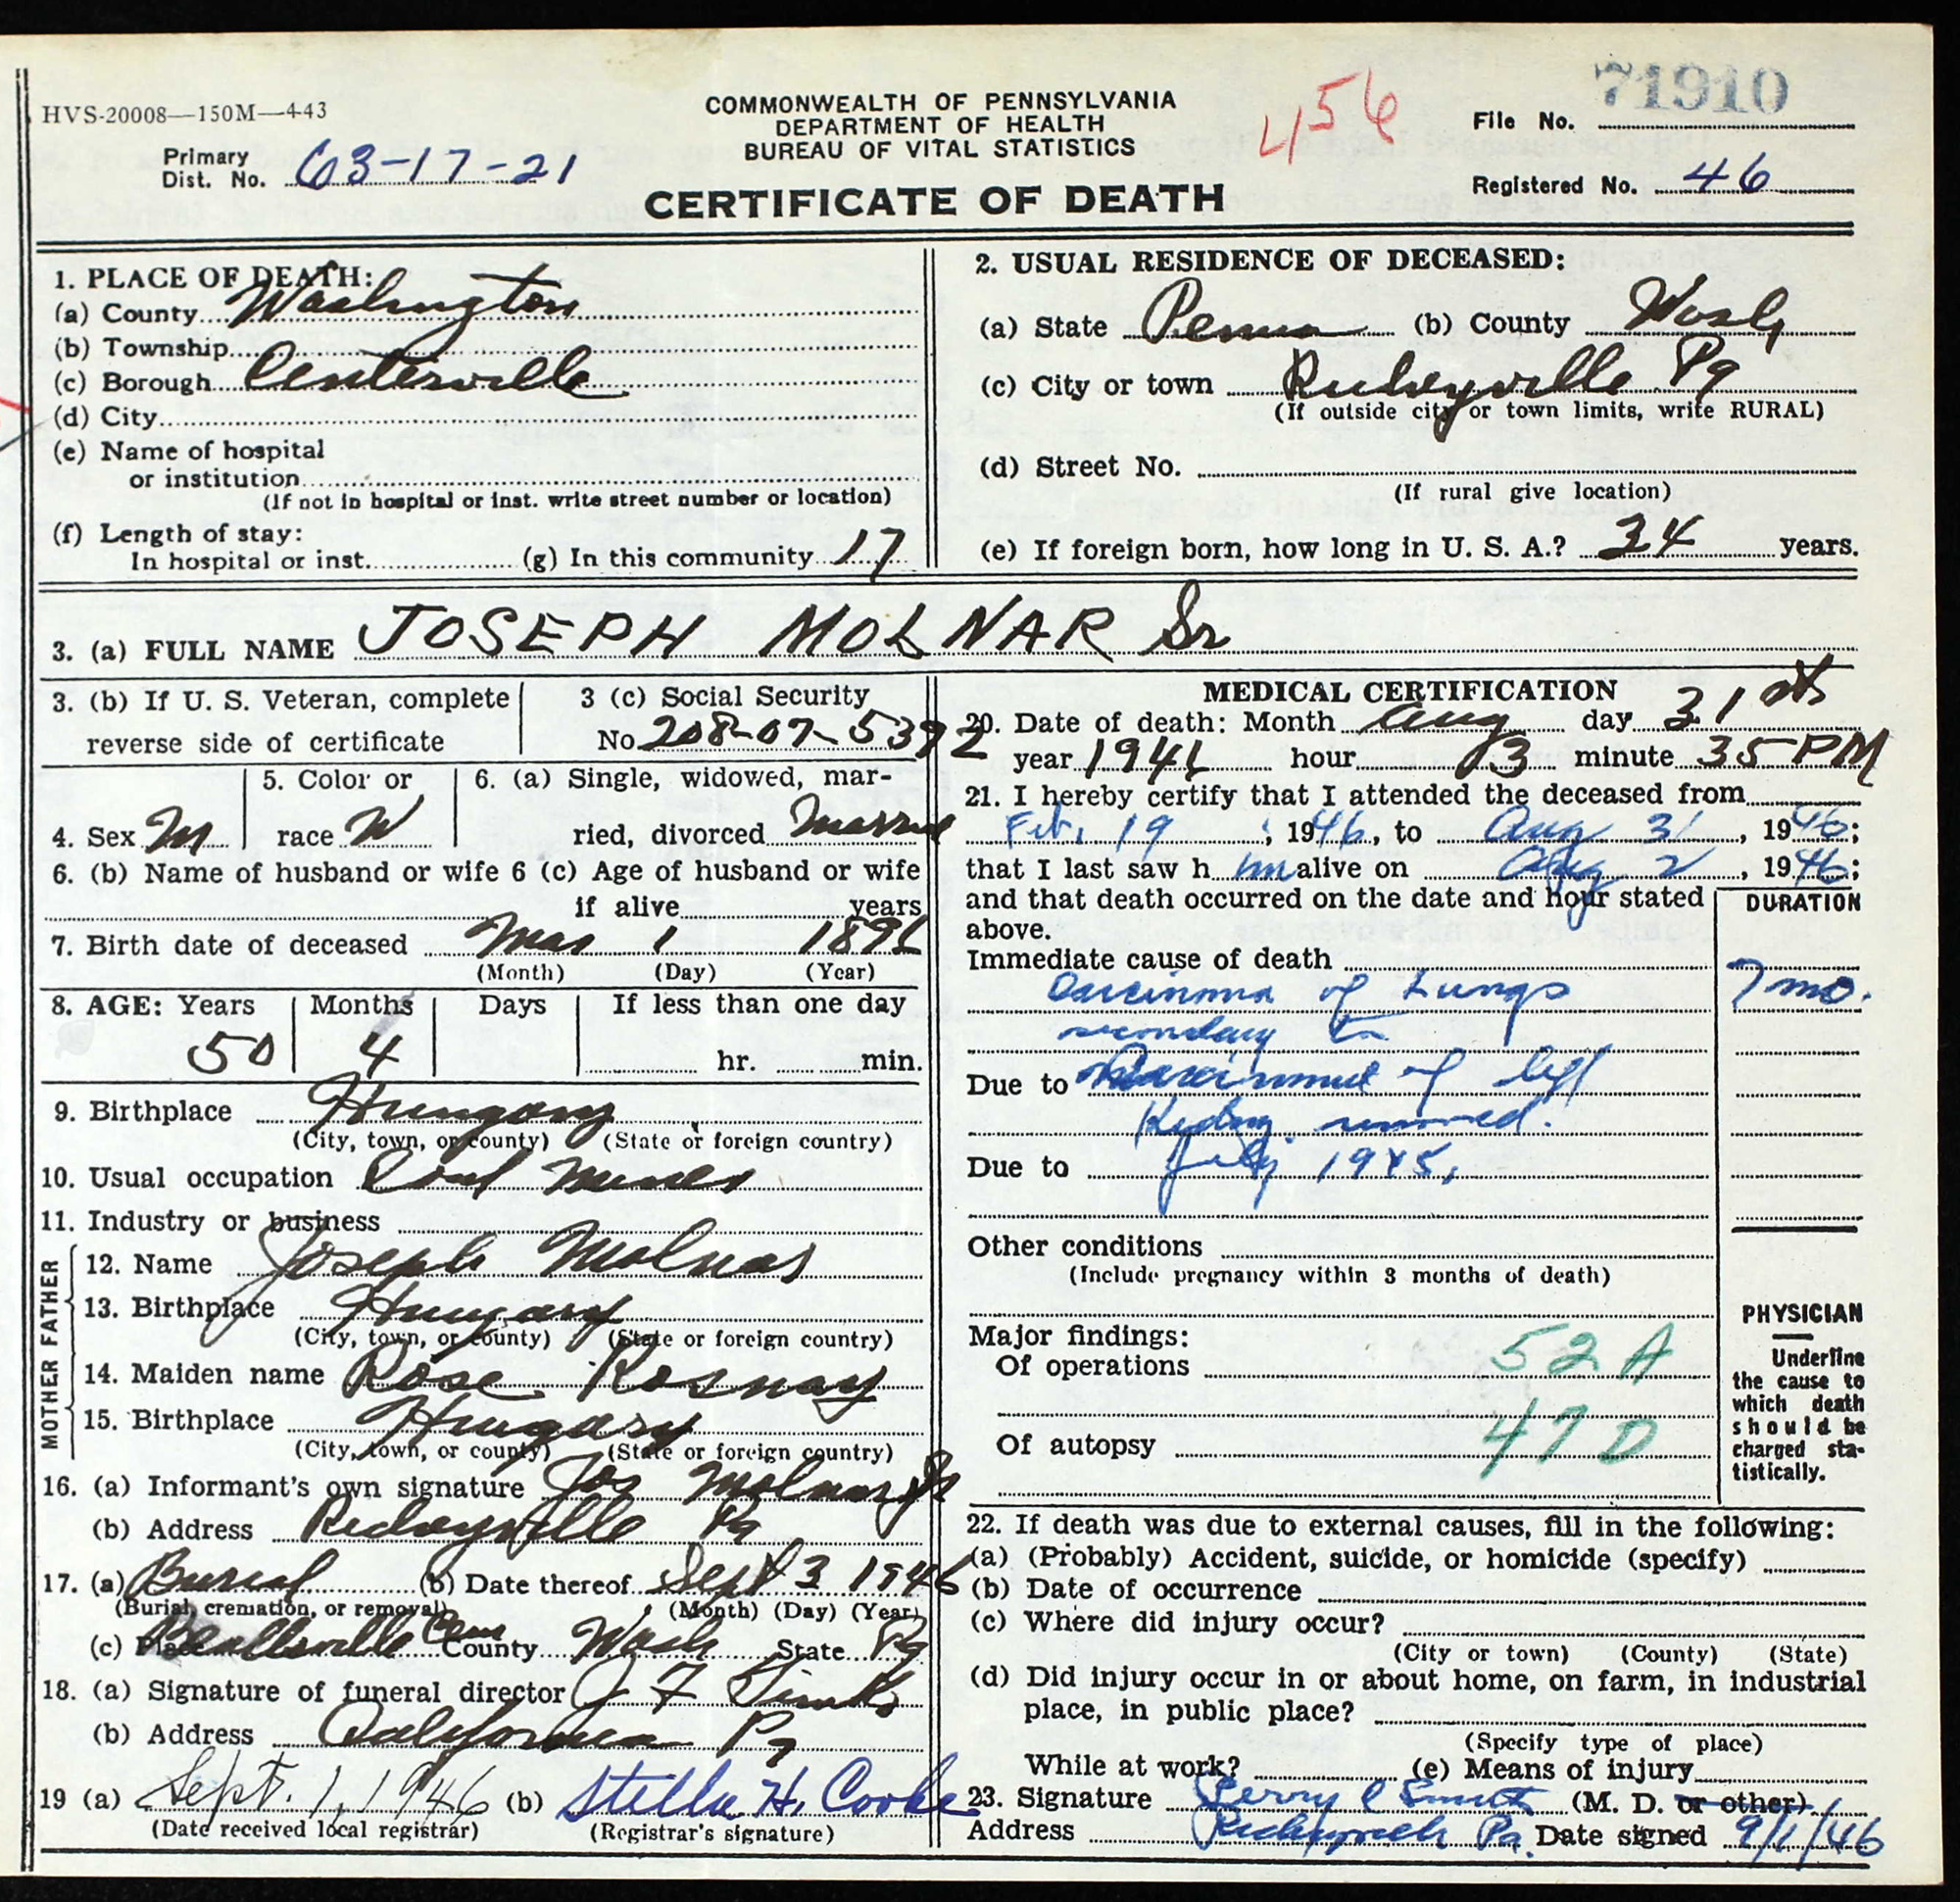 HVS-20008—150M—4-43
COMMONWEALTH OF PENNSYLVANIA
DEPARTMENT OF HEALTH
BUREAU OF VITAL STATISTICS
CERTIFICATE OF DEATH
456
71910
File No.
Primary
Dist. No. 63-17-21
Registered No. 46
1. PLACE OF DEATH:
(a) County Washington
(b) Township
(c) Borough Centerville
(d) City
(e) Name of hospital
or institution
(If not in hospital or inst. write street number or location)
(f) Length of stay:
In hospital or inst. (g) In this community 17
2. USUAL RESIDENCE OF DECEASED:
(a) State Penna (b) County Wash
(c) City or town Richeyville Pa
(If outside city or town limits, write RURAL)
(d) Street No.
(If rural give location)
(e) If foreign born, how long in U. S. A.? 34 years.
3. (a) FULL NAME JOSEPH MOLNAR Sr
3. (b) If U. S. Veteran, complete
reverse side of certificate
3 (c) Social Security
No. 208-07-5392
4. Sex M
5. Color or
race W
6. (a) Single, widowed, mar-
ried, divorced Married
6. (b) Name of husband or wife 6 (c) Age of husband or wife
if alive years
7. Birth date of deceased Mar 1 1896
(Month) (Day) (Year)
8. AGE: Years Months Days If less than one day
50 4 hr. min.
9. Birthplace Hungary
(City, town, or county) (State or foreign country)
10. Usual occupation Coal Miner
11. Industry or business
FATHER
12. Name Joseph Molnar
13. Birthplace Hungary
(City, town, or county) (State or foreign country)
MOTHER
14. Maiden name Rose
15. Birthplace Hungary
(City, town, or county) (State or foreign country)
16. (a) Informant's own signature Jos Molnar Jr
(b) Address Richeyville Pa
17. (a) Burial (b) Date thereof Sept 3 1946
(Burial, cremation, or removal) (Month) (Day) (Year)
(c) Place Beallsville Cem County Wash State Pa
18. (a) Signature of funeral director J F
(b) Address California Pa
19 (a) Sept. 1, 1946 (b) Stella H. Cooke
(Date received local registrar) (Registrar's signature)
MEDICAL CERTIFICATION
20. Date of death: Month Aug day 31st
year 1946 hour 3 minute 35 PM
21. I hereby certify that I attended the deceased from
Feb. 19, 1946, to Aug 31, 1946;
that I last saw h im alive on Aug 2, 1946;
and that death occurred on the date and hour stated
above.
DURATION
Immediate cause of death
Carcinoma of Lungs 7 mo.
secondary to
Due to Carcinoma of left
Kidney. removed.
Due to July 1945.
Other conditions
(Include pregnancy within 3 months of death)
Major findings:
Of operations 52 A
Of autopsy 47 D
PHYSICIAN
Underline
the cause to
which death
should be
charged sta-
tistically.
22. If death was due to external causes, fill in the following:
(a) (Probably) Accident, suicide, or homicide (specify)
(b) Date of occurrence
(c) Where did injury occur?
(City or town) (County) (State)
(d) Did injury occur in or about home, on farm, in industrial
place, in public place?
(Specify type of place)
While at work? (e) Means of injury
23. Signature Perry C Smith (M. D. or other)
Address Richeyville Pa. Date signed 9/1/46